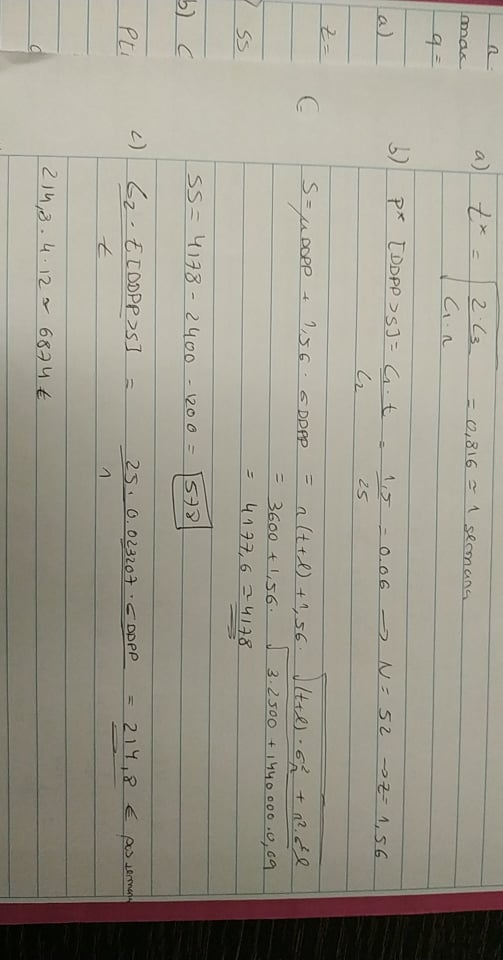 r
max
q =
a)
z =
SS
b) C
P[
a) t* = √(2·C3 / C1·r) = 0,816 ≃ 1 semana
b) P* [DDPP>S] = C1·t / C2 = 1,5 / 25 = 0.06 → N = 52 → z = 1,56
C S = μDDPP + 1,56 · σDDPP = r(t+l) + 1,56 · √((t+l)·σ²r + r²·σ²l)
= 3600 + 1,56 · √(3·2500 + 1440000·0,09)
= 4177,6 ≃ 4178
SS = 4178 - 2400 - 1200 = 578
c) C2 · E[DDPP>S] / t = 25 · 0.023207 · σDDPP / 1 = 214,8 € por semana
214,3 · 4 · 12 ≃ 6874 €